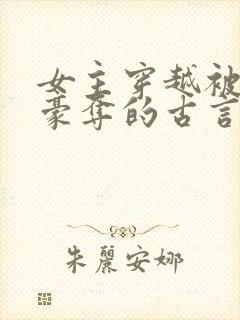 女主穿越被
豪夺的古言
朱丽安娜